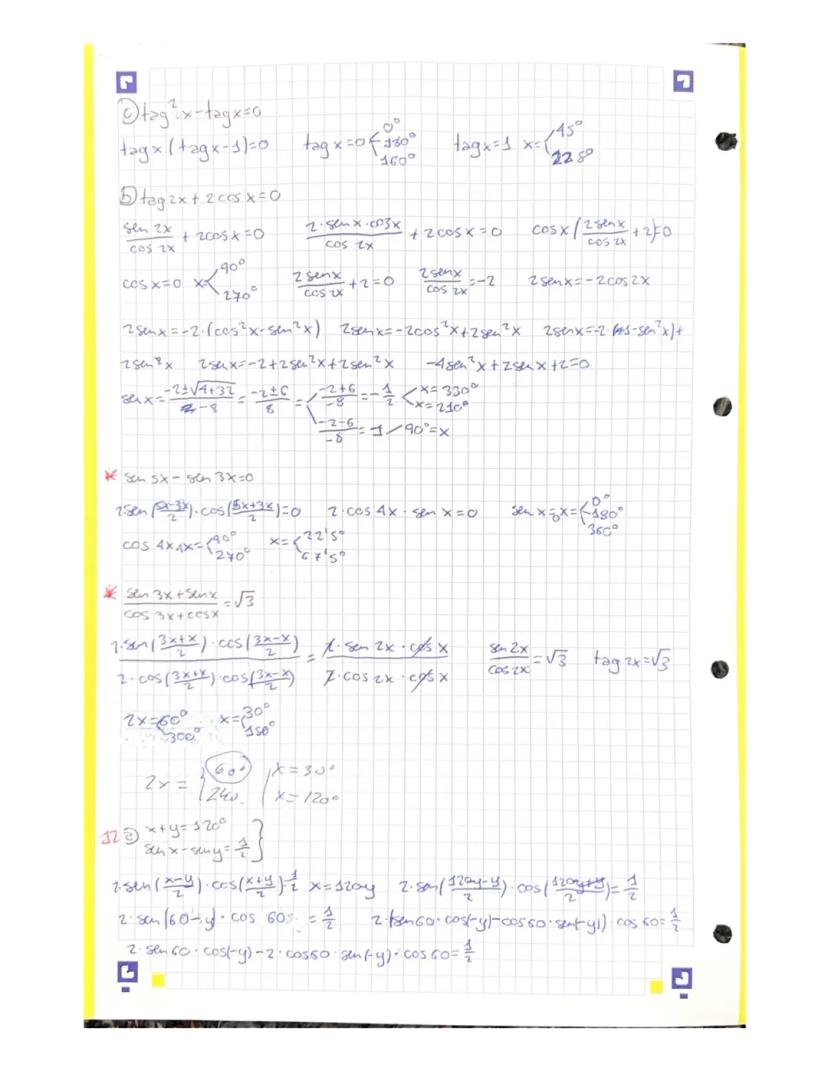 c) tag²x-tagx=0
tagx(tagx-1)=0 tagx=0 { 0° 180° 160° tagx=1 x= { 45° 225°
b) tag2x+2cosx=0
sen 2x / cos 2x + 2cosx=0 2·senx·cosx / cos 2x + 2cosx=0 cosx(2senx / cos 2x + 2)=0
cosx=0 x< 90° 270° 2senx / cos 2x + 2=0 2senx / cos 2x = -2 2senx=-2cos2x
2senx=-2·(cos²x-sen²x) 2senx=-2cos²x+2sen²x 2senx=-2·(1-sen²x)+
2sen²x 2senx=-2+2sen²x+2sen²x -4sen²x+2senx+2=0
senx= -2±√4+32 / -8 = -2±6 / 8 = -2+6 / -8 = -1/2 < x=330° x=210°
-2-6 / -8 = 1 / 90°=x
* sen 5x - sen 3x=0
2sen(5x-3x / 2)·cos(5x+3x / 2)=0 2·cos 4x·sen x=0 sen x=0 x= { 0° 180° 360°
cos 4x 4x= { 90° 270° x= { 22'5° 67'5°
* sen 3x+senx / cos 3x+cosx = √3
2·sen(3x+x / 2)·cos(3x-x / 2) / 2·cos(3x+x / 2)·cos(3x-x / 2) = 2·sen 2x·cos x / 2·cos 2x·cos x sen 2x / cos 2x = √3 tag 2x=√3
2x= 60° 300° x= { 30° 150°
2x = { 60° 240 | x=30° x=120°
12 a) x+y=120°
senx-seny=1/2 }
2·sen(x-y / 2)·cos(x+y / 2) 1/2 x=120-y 2·sen(120-y-y / 2)·cos(120-y+y / 2)=1/2
2·sen(60-y)·cos 60 = 1/2 2·(sen60·cos(-y)-cos60·sen(-y))·cos 60=1/2
2·sen 60·cos(-y)-2·cos60·sen(-y)·cos 60=1/2